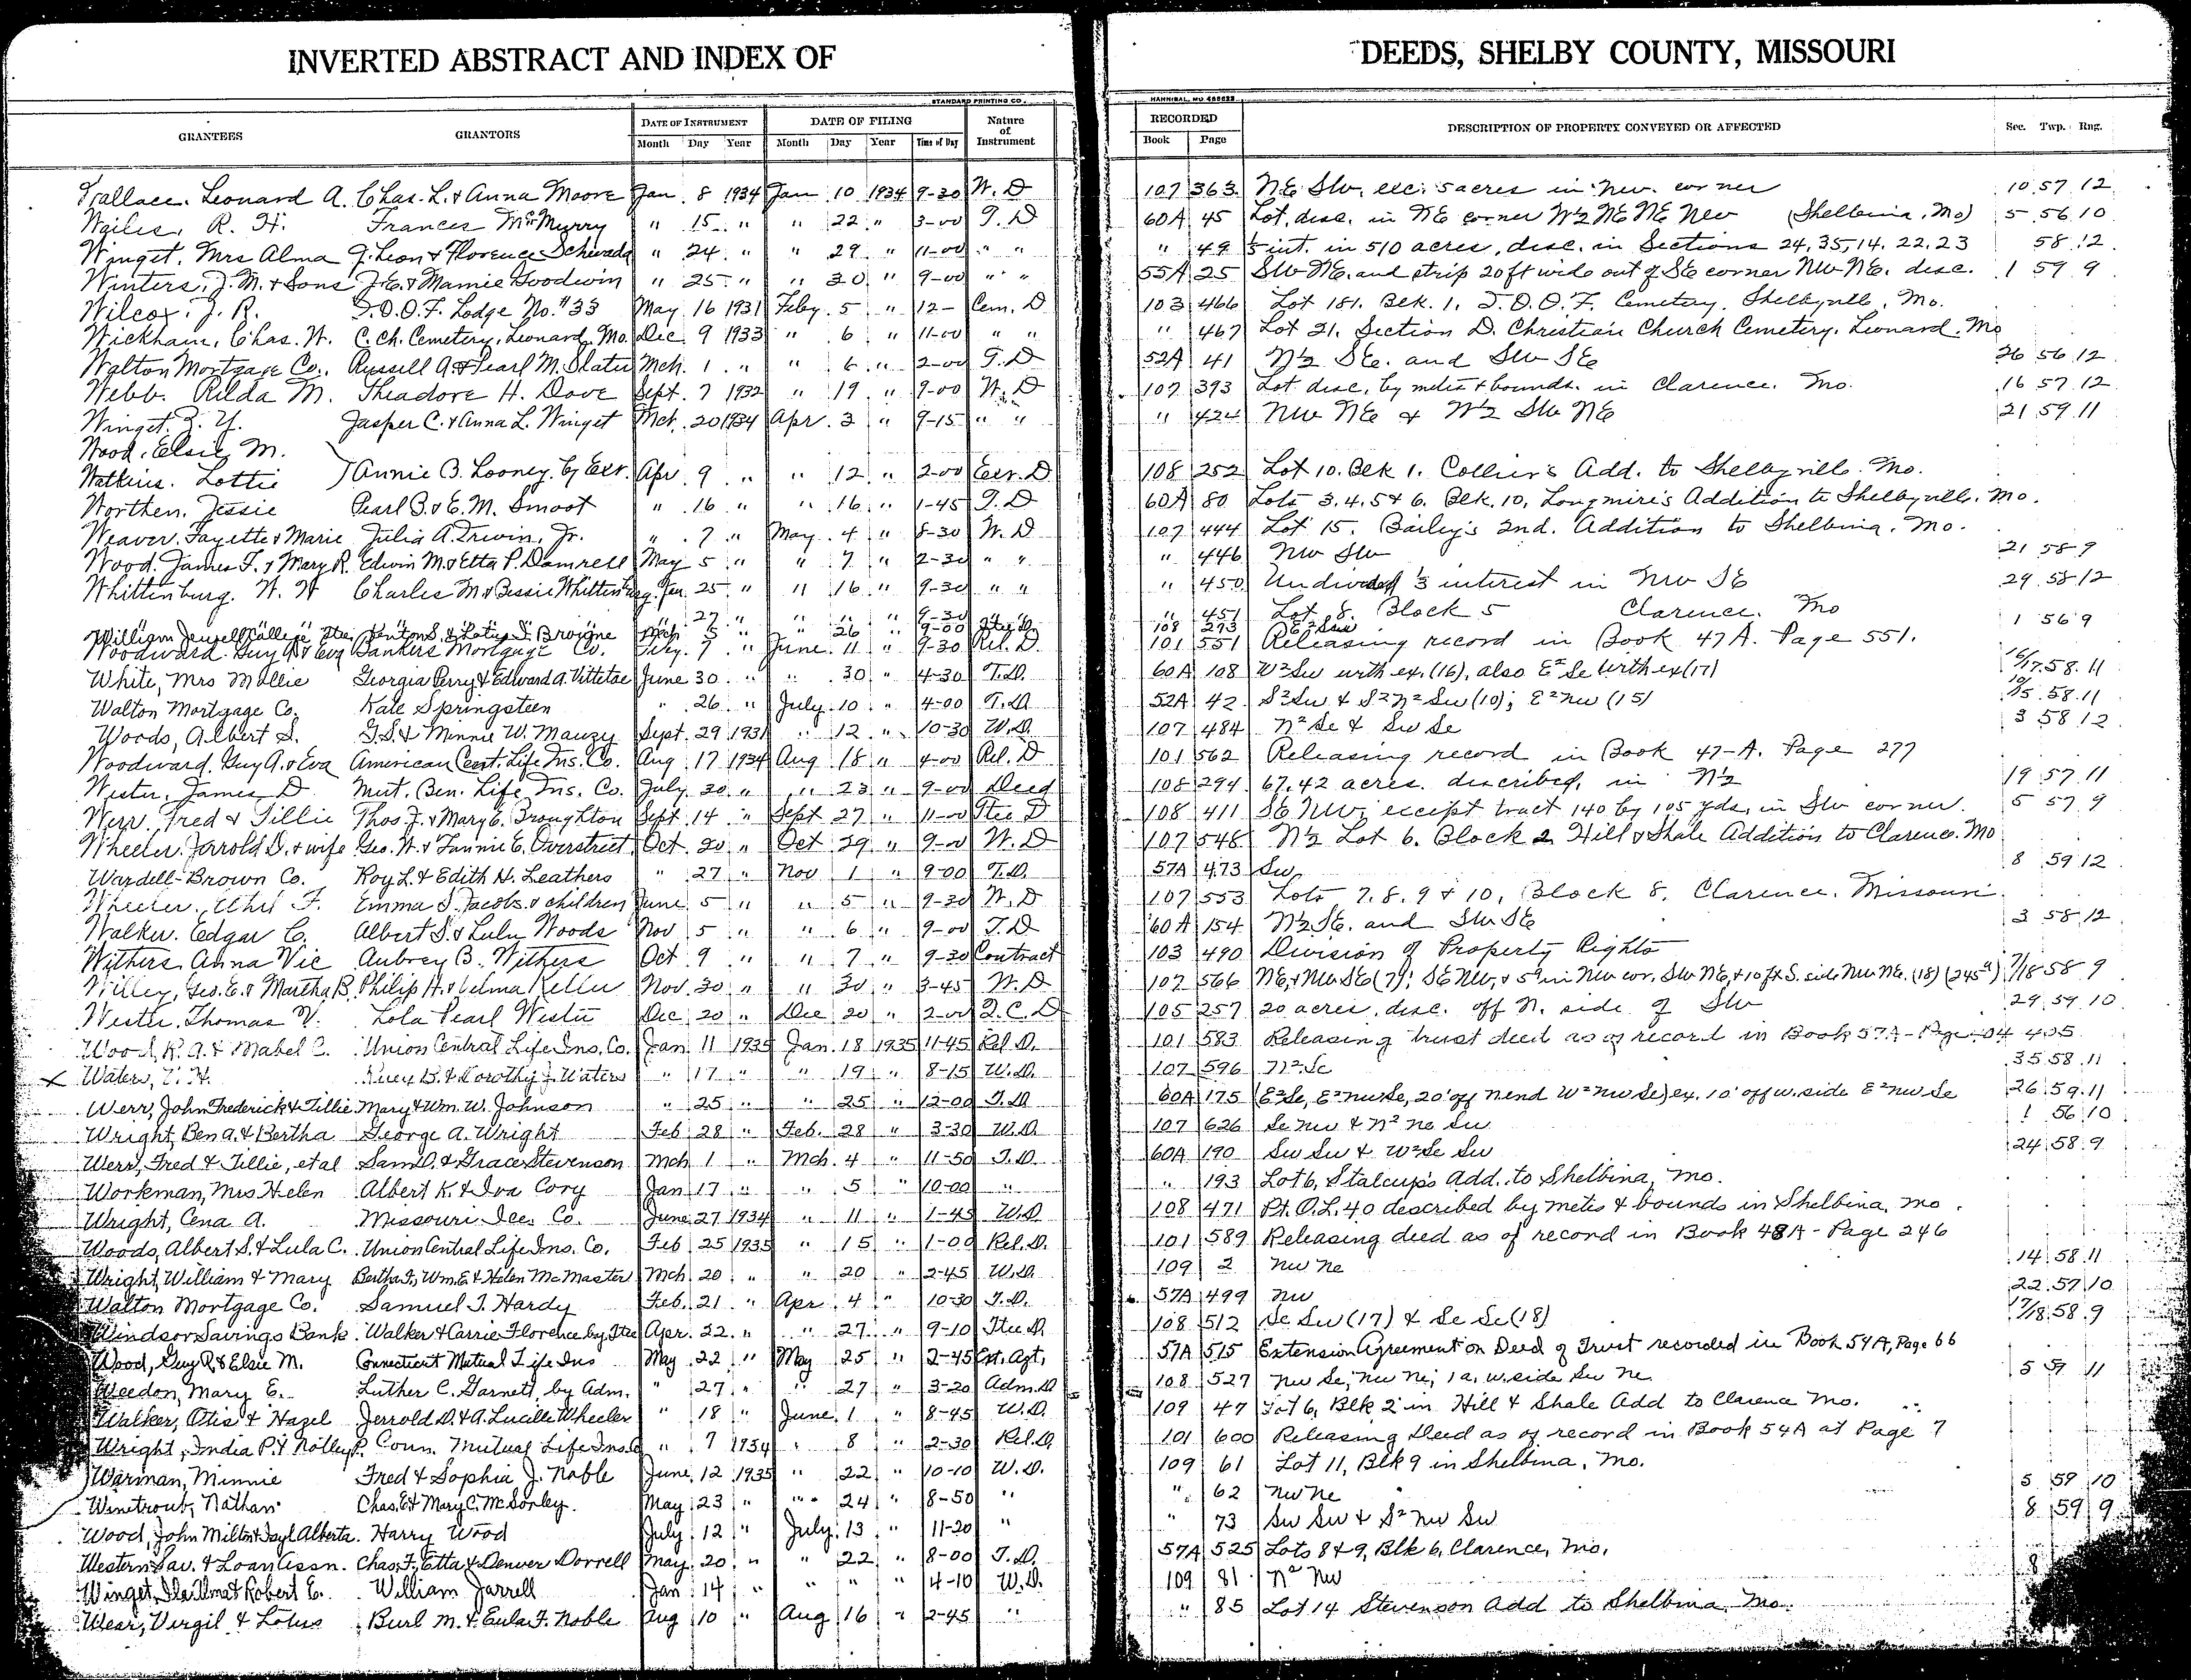 INVERTED ABSTRACT AND INDEX OF DEEDS, SHELBY COUNTY, MISSOURI
STANDARD PRINTING CO. HANNIBAL, MO
GRANTEES GRANTORS DATE OF INSTRUMENT DATE OF FILING Nature of Instrument RECORDED DESCRIPTION OF PROPERTY CONVEYED OR AFFECTED Sec. Twp. Rng.
Month Day Year Month Day Year Time of Day Book Page
Wallace, Leonard A. Chas. L. & Anna Moore Jan 8 1934 Jan 10 1934 9-30 W. D 107 363 NE SW, exc. 5 acres in NW. corner 10 57 12
Wailes, R. H. Frances McMurry " 15 " " 22 " 3-00 T. D 60A 45 Lot, desc. in NE corner W½ NE NE NW (Shelbina, Mo) 5 56 10
Winget, Mrs Alma J. Leon & Florence " 24 " " 29 " 11-00 " " " 49 ⅕ int. in 510 acres, desc. in Sections 24, 35, 14, 22, 23 58 12
Winters, J. M. & Sons J. E. & Mamie Goodwin " 25 " " 30 " 9-00 " " 55A 25 SW NE. and strip 20 ft wide out of SE corner NW NE. desc. 1 59 9
Wilcox, J. R. I.O.O.F. Lodge No. #33 May 16 1931 Feby 5 " 12- Cem. D 103 466 Lot 181. Blk. 1, I.O.O.F. Cemetery, Shelbyville, Mo.
Wickham, Chas. W. C. Ch. Cemetery, Leonard, Mo. Dec 9 1933 " 6 " 11-00 " " " 467 Lot 21. Section D. Christian Church Cemetery, Leonard, Mo
Walton Mortgage Co., Russell A. & Pearl M. Slater Mch. 1 " " 6 " 2-00 T. D 52A 41 N½ SE. and SW SE 26 56 12
Webb, Rilda M. Theadore H. Dove Sept. 7 1932 " 19 " 9-00 W. D 107 393 Lot desc. by metes & bounds. in Clarence, Mo. 16 57 12
Winget, Z. Y. Jasper C. & Anna L. Winget Mch. 20 1934 Apr. 3 " 9-15 " " " 424 NW NE & W½ SW NE 21 59 11
Wood, Elsie M.
Watkins, Lottie } Annie B. Looney, by Exr. Apr 9 " " 12 " 2-00 Exr. D 108 252 Lot 10. Blk 1. Collier's Add. to Shelbyville, Mo.
Worthen, Jessie Pearl B. & E. M. Smoot " 16 " " 16 " 1-45 T. D 60A 80 Lots 3.4.5 & 6. Blk. 10, Longmire's Addition to Shelbyville, Mo.
Weaver, Fayette & Marie Julia A. Irwin, Jr. " 7 " May 4 " 8-30 W. D 107 444 Lot 15. Bailey's 2nd. Addition to Shelbina, Mo.
Wood, James F. & Mary R. Edwin M. & Etta P. Damrell May 5 " " 7 " 2-30 " " " 446 NW SW 21 58 9
Whittenburg, W. W Charles M. & Bessie Whittenburg Jan. 25 " " 16 " 9-30 " " " 450 Undivided ⅓ interest in NW SE 29 58 12
" " " " 27 " " " " 9-30 " " " 451 Lot 8. Block 5 Clarence, Mo
William Jewell College Browne Mch 5 " " 26 " 9-00 Ttee D. 108 293 1 56 9
Woodward, Guy A. & Eva Bankers Mortgage Co. Feby. 7 " June 11 " 9-30 Rel. D. 101 551 Releasing record in Book 47A. Page 551.
White, Mrs Mollie Georgia Perry & Edward A. Vittetoe June 30 " " 30 " 4-30 T.D. 60A 108 W²SW with ex. (16), also E² Se with ex (17) 16/17 58 11
Walton Mortgage Co. Kate Springsteen " 26 " July 10 " 4-00 T.D. 52A 42 S²SW & S²N²SW (10); E²NW (15) 10/15 58 11
Woods, Albert S. G.S. & Minnie W. Mauzy Sept. 29 1931 " 12 " 10-30 W.D. 107 484 N² Se & SW Se 3 58 12
Woodward, Guy A. & Eva American Cent. Life Ins. Co. Aug 17 1934 Aug 18 " 4-00 Rel. D 101 562 Releasing record in Book 47-A. Page 277
Wester, James D Mut. Ben. Life Ins. Co. July 20 " " 23 " 9-00 Deed 108 294 67.42 acres, described, in N½ 19 57 11
Werr, Fred & Tillie Thos J. & Mary E. Broughton Sept 14 " Sept 27 " 11-00 Ttee D 108 411 SE NW, except tract 140 by 105 yds. in SW corner. 5 57 9
Wheeler, Jarrold D. & wife Geo. W. & Fannie E. Overstreet Oct. 20 " Oct 29 " 9-00 W. D 107 548 N½ Lot 6. Block 2 Hill & Shale Addition to Clarence, Mo
Wardell-Brown Co. Roy L. & Edith H. Leathers " 27 " Nov 1 " 9-00 T.D. 57A 473 SW 8 59 12
Wheeler, F. Emma S. Jacobs & children June 5 " " 5 " 9-30 W. D 107 553 Lots 7. 8. 9 & 10, Block 8, Clarence, Missouri
Walker, Edgar C. Albert S. & Lulu Woods Nov 5 " " 6 " 9-00 T. D 60A 154 N½ SE. and SW SE 3 58 12
Withers, Anna Vic Aubrey B. Withers Oct 9 " " 7 " 9-30 Contract 103 490 Division of Property Rights
Willey, Geo. E. & Martha B. Philip H. & Velma Keller Nov. 30 " " 30 " 3-45 W. D 107 566 NE, & NW SE (7); SE NW, & 5ᵃ in NW cor. SW NE, & 10 ft S. side NW NE. (18) (245ᵃ) 7/18 58 9
Wester, Thomas V. Lola Pearl Wester Dec 20 " Dec 20 " 2-00 Q. C. D 105 257 20 acres, desc. off N. side of SW 29 59 10
Wood, R. A. & Mabel C. Union Central Life Ins. Co. Jan 11 1935 Jan. 18 1935 11-45 Rel. D. 101 583 Releasing trust deed as of record in Book 57A - Page 405
x Waters, H. & Dorothy J. Waters " 17 " " 19 " 8-15 W.D. 107 596 N²Se 35 58 11
Werr, John Frederick & Tillie Mary & Wm. W. Johnson " 25 " " 25 " 12-00 T.D. 60A 175 (E²Se, E²NWSe, 20' off N end W²NWSe) ex. 10' off W. side E²NWSe 26 59 11
Wright, Ben A. & Bertha George A. Wright Feb 28 " Feb. 28 " 3-30 W.D. 107 626 Se NW & N² NE SW 1 56 10
Werr, Fred & Tillie, et al Sam D. & Grace Stevenson Mch 1 " Mch. 4 " 11-50 T.D. 60A 190 SW SW & W²Se SW 24 58 9
Workman, Mrs Helen Albert K. & Iva Cory Jan 17 " " 5 " 10-00 " " 193 Lot 6, Stalcup's Add. to Shelbina, Mo.
Wright, Cena A. Missouri Ice Co. June 27 1934 " 11 " 1-45 W.D. 108 471 Pt. O.L. 40 described by metes & bounds in Shelbina, Mo.
Woods, Albert S. & Lula C. Union Central Life Ins. Co. Feb 25 1935 " 15 " 1-00 Rel. D. 101 589 Releasing deed as of record in Book 48A - Page 246
Wright, William & Mary Bertha F., Wm. E. & Helen McMaster Mch 20 " " 20 " 2-45 W.D. 109 2 NW NE 14 58 11
Walton Mortgage Co. Samuel T. Hardy Feb. 21 " Apr 4 " 10-30 T.D. 57A 499 NW 22 57 10
Windsor Savings Bank. Walker & Carrie Florence by Ttee Apr. 22 " " 27 " 9-10 Ttee D. 108 512 Se SW (17) & Se Se (18) 17/18 58 9
Wood, Guy R. & Elsie M. Connecticut Mutual Life Ins May 22 " May 25 " 2-45 Ext. Agt. 57A 515 Extension Agreement on Deed of Trust recorded in Book 54A, Page 66
Weedon, Mary E. Luther C. Garnett, by Adm. " 27 " " 27 " 3-20 Adm. D 108 527 NW Se, NW NE; 1 a. W. side SW NE 5 59 11
Walker, Otis & Hazel Jerrold D. & A. Lucille Wheeler " 18 " June 1 " 8-45 W.D. 109 47 Lot 6, Blk 2 in Hill & Shale Add to Clarence Mo.
Wright, India P. & Notley P. Conn. Mutual Life Ins. Co " 7 1934 " 8 " 2-30 Rel. D. 101 600 Releasing Deed as of record in Book 54A at Page 7
Warman, Minnie Fred & Sophia J. Noble June 12 1935 " 22 " 10-10 W.D. 109 61 Lot 11, Blk 9 in Shelbina, Mo.
Winetroub, Nathan Chas. E. & Mary C. McSorley. May 23 " " 24 " 8-50 " " 62 NW NE 5 59 10
Wood, John Milton & Alberta. Harry Wood July 12 " July 13 " 11-20 " " 73 SW SW & S² NW SW 8 59 9
Western Sav. & Loan Assn. Chas. F., Etta & Denver Dorrell May 20 " " 22 " 8-00 T.D. 57A 525 Lots 8 & 9, Blk 6, Clarence, Mo.
Winget, Robert E. William Jarrell Jan 14 " " " " 4-10 W.D. 109 81 N² NW 8
Wear, Virgil & Lotus Burl M. & Eula F. Noble Aug 10 " Aug 16 " 2-45 " " 85 Lot 14 Stevenson Add to Shelbina, Mo.